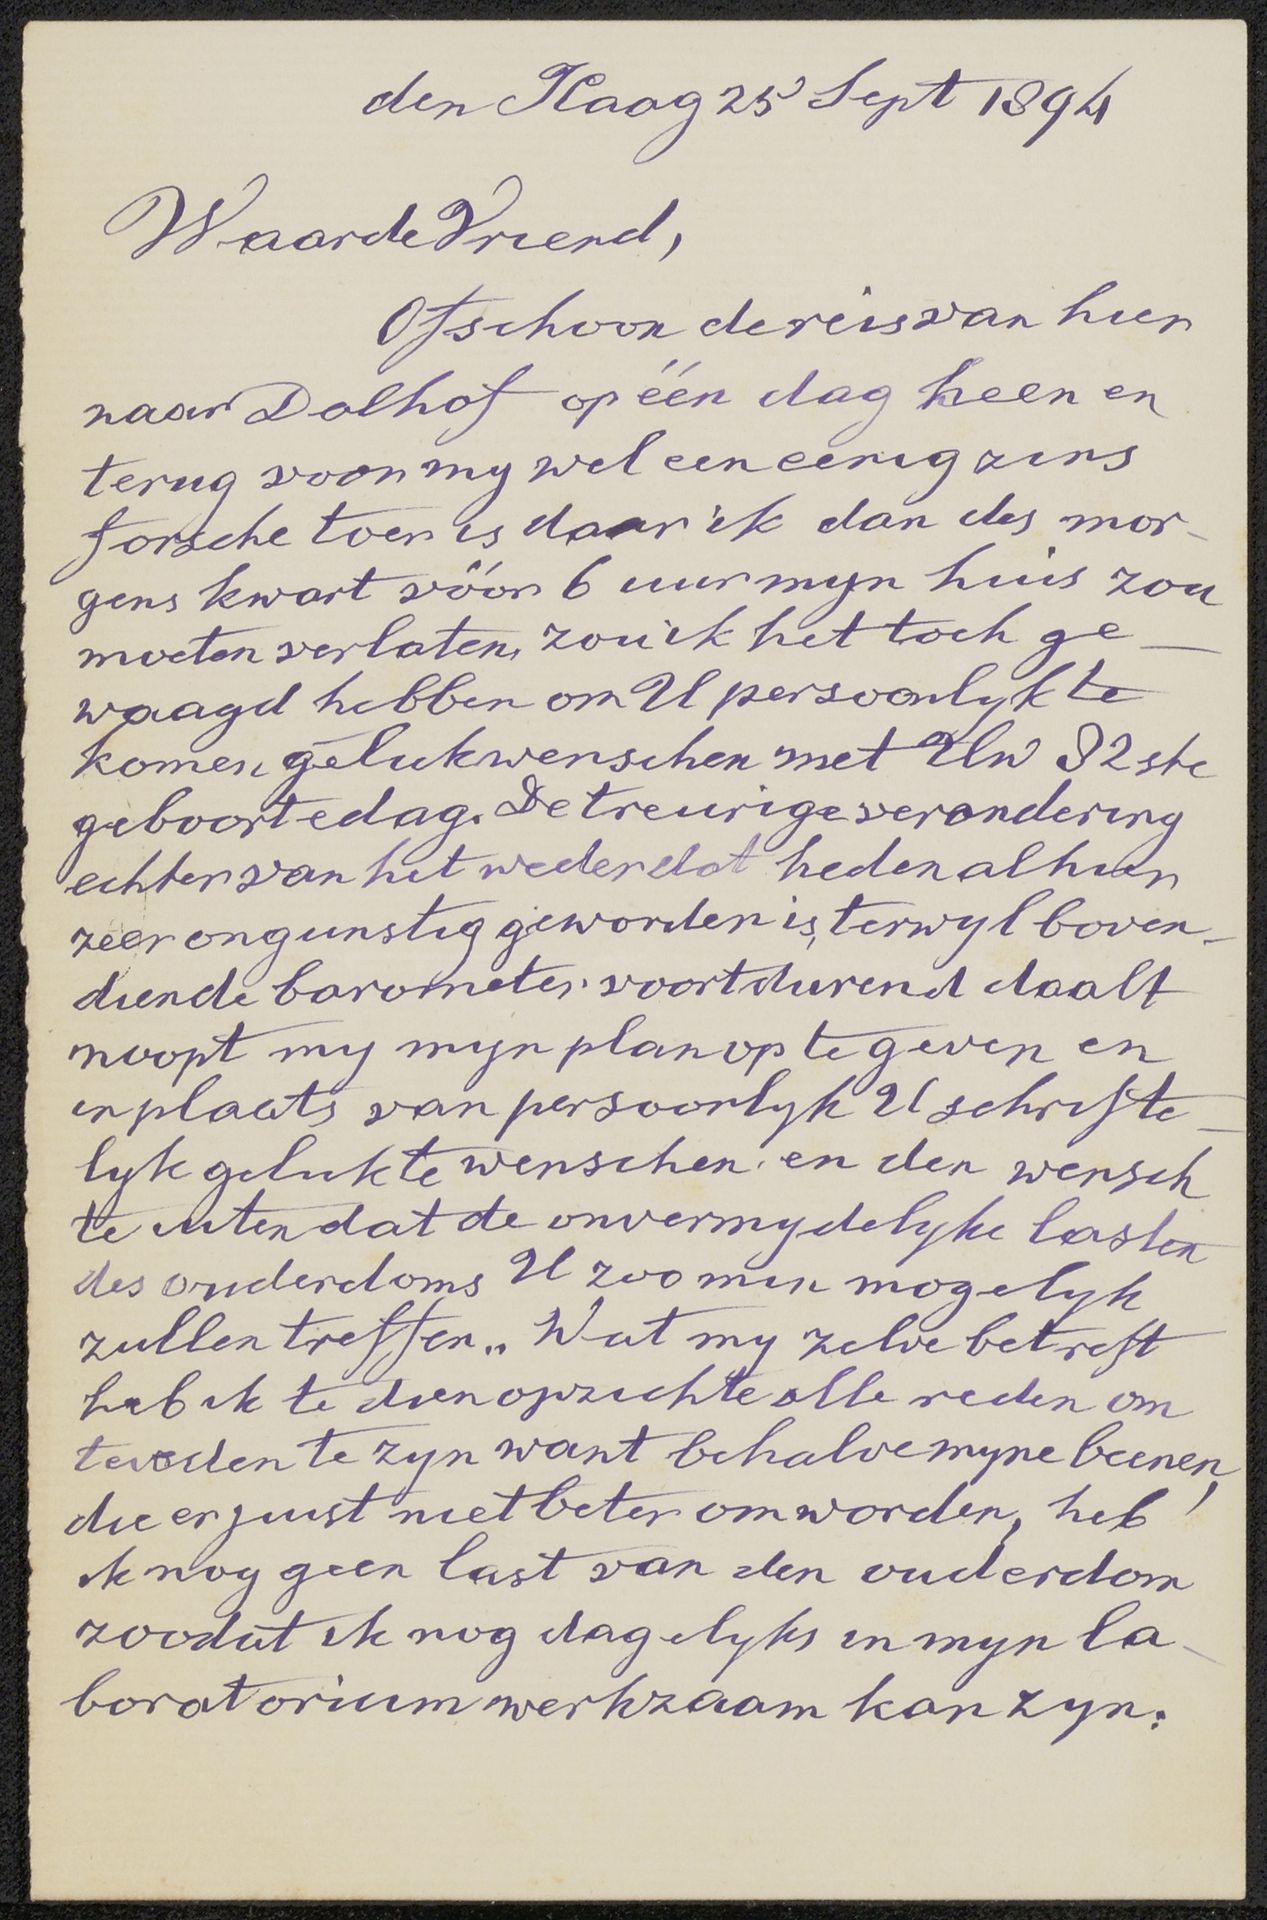 den Haag 25 Sept 1894
Waarde Vriend,
Ofschoon de reis van hier
naar Dalhof op één dag heen en
terug voor my wel een eenigzins
forsche toer is daar ik dan des mor-
gens kwart vóór 6 uur myn huis zou
moeten verlaten, zou ik het toch ge-
waagd hebben om U persoonlyk te
komen gelukwenschen met Uw 82ste
geboortedag. De treurige verandering
echter van het weder dat heden alhier
zeer ongunstig geworden is, terwyl boven-
dien de barometer voortdurend daalt
noopt my myn plan op te geven en
in plaats van persoonlyk U schrifte-
lyk geluk te wenschen en den wensch
te uiten dat de onvermydelyke lasten
des ouderdoms U zoo min mogelyk
zullen treffen.. Wat my zelve betreft
heb ik te dien opzichte alle reden om
tevreden te zyn want behalve myne beenen,
die er juist niet beter om worden, heb
ik nog geen last van den ouderdom
zoodat ik nog dagelyks in myn la-
boratorium werkzaam kan zyn.